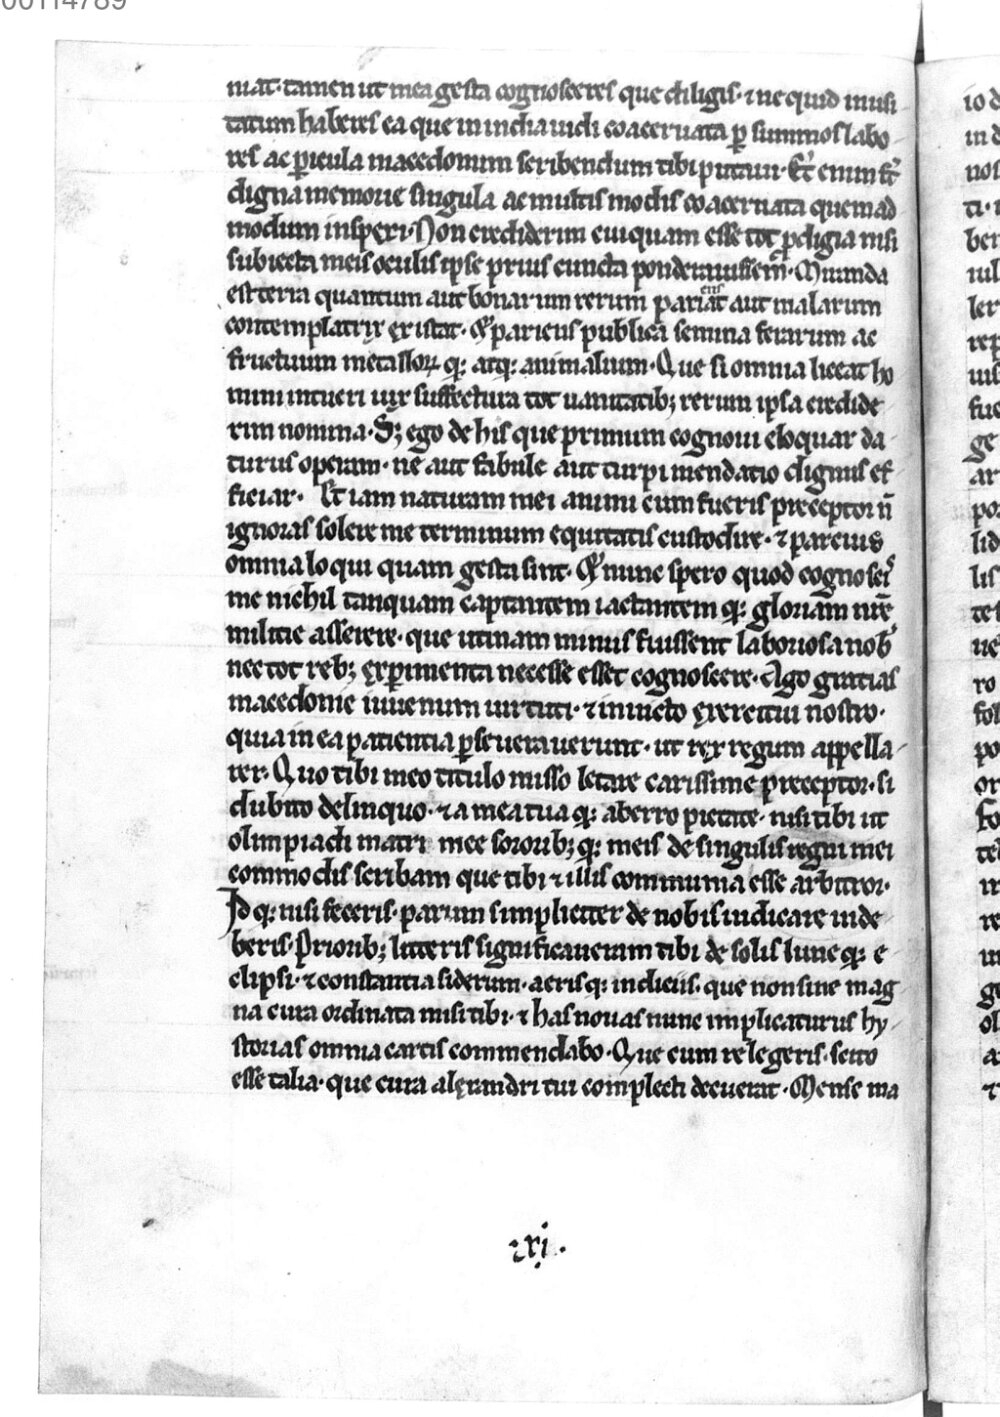 00114789
mat· tamen ut mea gesta cognosceres que diligis· ⁊ ne quid inusi
tatum haberes ea que in india uidi coaceruata ꝑ summos labo
res ac ꝑicula macedonum scribendum tibi putaui· Et̄ enim st̄
digna memorie singula ac multis modis coaceruata quemad
modum inspexi· Non crediderim cuiquam esse tot ꝓdigia nisi
subiecta meis oculis ipse prius cuncta ponderauissem· Miranda
est terra quantum aut bonarum rerum pariat aut malarum
contemplatrix existat· pariens publica semina ferarum ac
fructuum metalloꝝ q; atq; animalium· Que si omnia liceat ho
mini intueri uix suffectura tot uarietatib; rerum ipsa credide
rim nomina· S; ego de his que primum cognoui eloquar da
turus operam· ne aut fabule aut turpi mendatio dignus ef
ficiar· Et iam naturam mei animi cum fueris preceptor n̄
ignoras solere me terminum equitatis custodire· ⁊ parcius
omnia loqui quam gesta sint· nunc spero quod cognosci
me nichil tanquam captantem iactantem q; gloriam nr̄e
militie asserere· que utinam minus fuissent laboriosa nob
nec tot reb; exꝑimenta necesse esset cognoscere· Ago gratias
macedonie iuuenum uirtuti· ⁊ inuicto exercitui nostro·
quia in ea patientia ꝑseuerauerunt· ut rex regum appella
rer· Quo tibi meo titulo misso letare carissime preceptor· si
dubito delinquo· ⁊ a mea tua q; aberro pietate· nisi tibi ut
olimpiadi matri mee sororib; q; meis de singulis regni mei
commodis scribam que tibi ⁊ illis communia esse arbitror·
Id q; nisi feceris· parum simpliciter de nobis iudicare uide
beris· Priorib; litteris significaueram tibi de solis lune q; e
clipsi· ⁊ constantia siderum· aeris q; indiciis· que non sine mag
na cura ordinata misi tibi· ⁊ has nouas nunc implicaturus hy
storias omnia cartis commendabo· Que cum relegeris· scito
esse talia· que cura alexandri tui complecti decuerat· Mense ma
·xi·